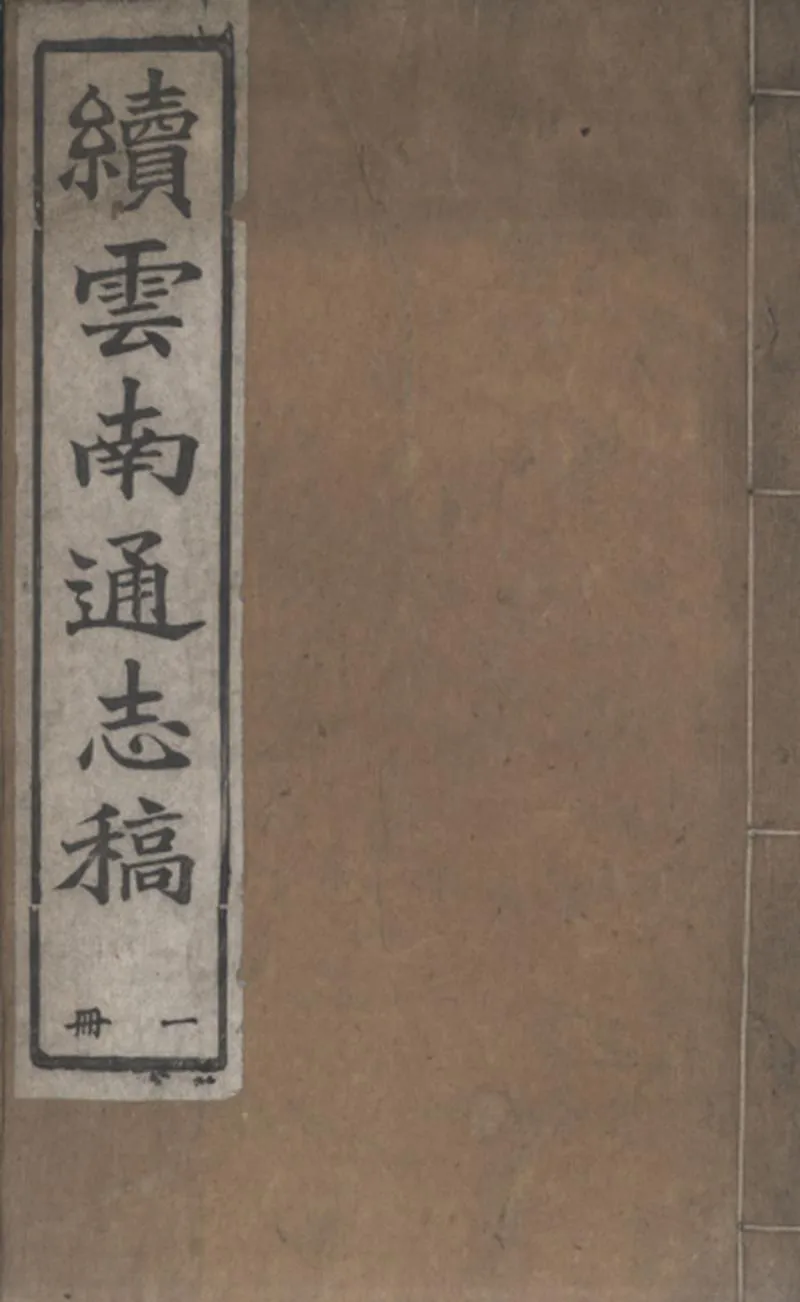 續雲南通志稿
一冊